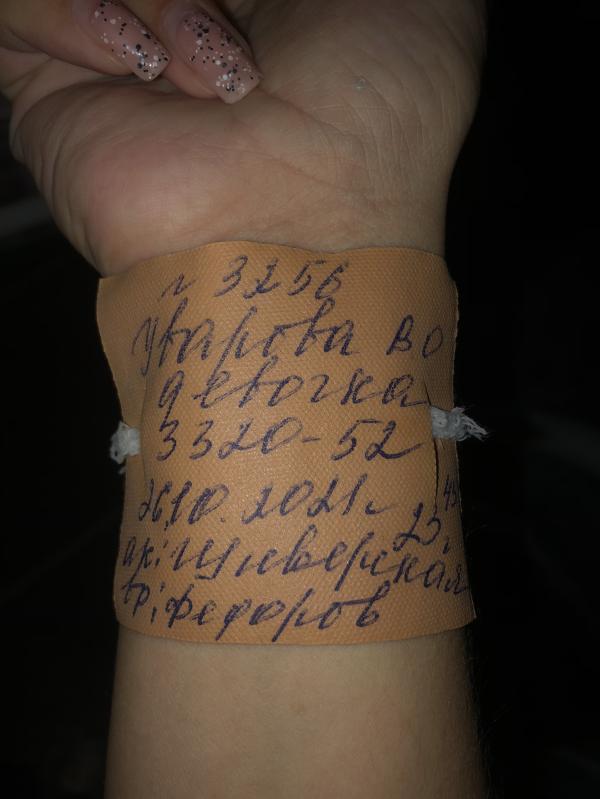 г 3256
Уварова ВО
девочка
3320-52
26.10.2021г 23,45
ак:
вр: Федоров